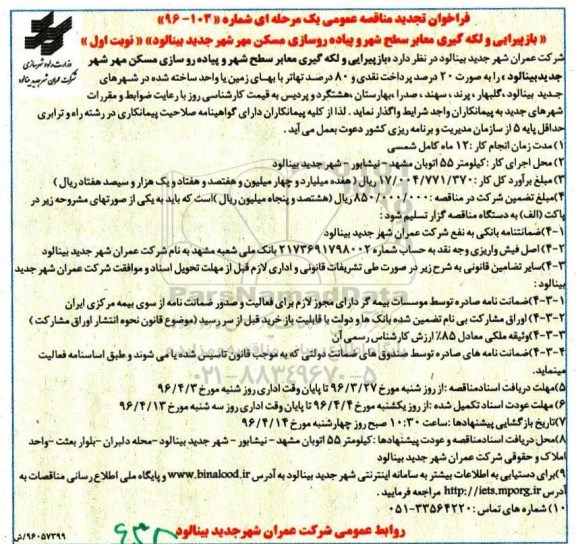 فراخوان تجدید مناقصه عمومی یک مرحله ای شماره «۱۰۳-۹۶»
« بازپیرایی و لکه گیری معابر سطح شهر و پیاده روسازی مسکن مهر شهر جدید بینالود» « نوبت اول »
وزارت راه و شهرسازی
شرکت عمران شهر جدید بینالود
شرکت عمران شهر جدید بینالود در نظر دارد «بازپیرایی و لکه گیری معابر سطح شهر و پیاده رو سازی مسکن مهر شهر
جدید بینالود» را به صورت ۲۰ درصد پرداخت نقدی و ۸۰ درصد تهاتر با بهای زمین یا واحد ساخته شده در شهرهای
جدید بینالود، گلبهار، پرند، سهند، صدرا، بهارستان، هشتگرد و پردیس به قیمت کارشناسی روز با رعایت ضوابط و مقررات
شهرهای جدید به پیمانکاران واجد شرایط واگذار نماید. لذا از کلیه پیمانکاران دارای گواهینامه صلاحیت پیمانکاری در رشته راه و ترابری
حداقل پایه ۵ از سازمان مدیریت و برنامه ریزی کشور دعوت بعمل می آید.
۱) مدت زمان انجام کار: ۱۲ ماه کامل شمسی
۲) محل اجرای کار: کیلومتر ۵۵ اتوبان مشهد - نیشابور - شهر جدید بینالود
۳) مبلغ برآورد کل کار: ۱۷/۰۰۴/۷۷۱/۳۷۰ ریال (هفده میلیارد و چهار میلیون و هفتصد و هفتاد و یک هزار و سیصد هفتاد ریال)
۴) مبلغ تضمین شرکت در مناقصه: ۸۵۰/۰۰۰/۰۰۰ ریال (هشتصد و پنجاه میلیون ریال) است که باید به یکی از صورتهای مشروحه زیر در
پاکت (الف) به دستگاه مناقصه گزار تسلیم شود:
۴-۱) ضمانتنامه بانکی به نفع شرکت عمران شهر جدید بینالود
۴-۲) اصل فیش واریزی وجه نقد به حساب شماره ۲۱۷۳۶۹۱۷۹۸۰۰۲ بانک ملی شعبه مشهد به نام شرکت عمران شهر جدید بینالود
۴-۳) سایر تضامین قانونی به شرح زیر در صورت طی تشریفات قانونی و اداری لازم قبل از مهلت تحویل اسناد و موافقت شرکت عمران شهر جدید
بینالود:
۴-۳-۱) ضمانت نامه صادره توسط موسسات بیمه گر دارای مجوز لازم برای فعالیت و صدور ضمانت نامه از سوی بیمه مرکزی ایران
۴-۳-۲) اوراق مشارکت بی نام تضمین شده بانک ها و دولت با قابلیت باز خرید قبل از سر رسید (موضوع قانون نحوه انتشار اوراق مشارکت)
۴-۳-۳) وثیقه ملکی معادل ۸۵٪ ارزش کارشناس رسمی آن
۴-۳-۴) ضمانت نامه های صادره توسط صندوق های ضمانت دولتی که به موجب قانون تاسیس شده یا می شوند و طبق اساسنامه فعالیت
مینماید.
۵) مهلت دریافت اسناد مناقصه: از روز شنبه مورخ ۹۶/۳/۲۷ تا پایان وقت اداری روز شنبه مورخ ۹۶/۴/۳
۶) مهلت عودت اسناد تکمیل شده: از روز یکشنبه مورخ ۹۶/۴/۴ تا پایان وقت اداری روز سه شنبه مورخ ۹۶/۴/۱۳
۷) تاریخ بازگشایی پیشنهادها: ساعت ۱۰:۳۰ صبح روز چهارشنبه مورخ ۹۶/۴/۱۴
۸) محل دریافت اسناد مناقصه و عودت پیشنهادها: کیلومتر ۵۵ اتوبان مشهد - نیشابور - شهر جدید بینالود - محله دلبران - بلوار بعثت - واحد
املاک و حقوقی شرکت عمران شهر جدید بینالود
۹) برای دستیابی به اطلاعات بیشتر به سامانه اینترنتی شهر جدید بینالود به آدرس www.binalood.ir و پایگاه ملی اطلاع رسانی مناقصات به
آدرس http://iets.mporg.ir مراجعه فرمایید.
۱۰) شماره های تماس: ۳۳۵۶۴۲۲۰-۰۵۱
روابط عمومی شرکت عمران شهر جدید بینالود
۹۶۰۵۷۳۹۹/ش
ParsNamadData
۰۲۱-۸۸۳۴۹۶۷۰-۵